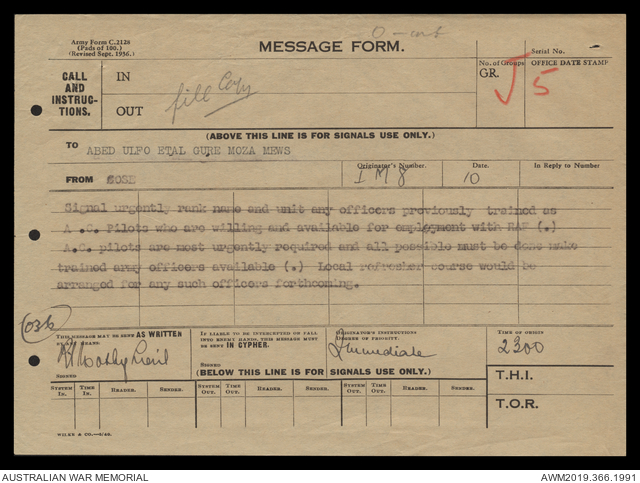 Army Form C.2128
(Pads of 100.)
(Revised Sept. 1936.)
MESSAGE FORM.
Serial No.
CALL
AND
INSTRUC-
TIONS.
IN
OUT
file Copy
No. of Groups
GR.
OFFICE DATE STAMP
5
(ABOVE THIS LINE IS FOR SIGNALS USE ONLY.)
TO
ABED ULFO ETAL GURE MOZA MEWS
FROM
Originator's Number.
Date.
In Reply to Number
IM8
10
Signal urgently rank name and unit any officers previously trained as
A.C. Pilots who are willing and available for employment with RAF (.)
A.C. pilots are most urgently required and all possible must be done make
trained army officers available (.) Local refresher course would be
arranged for any such officers forthcoming.
THIS MESSAGE MAY BE SENT AS WRITTEN
BY ANY MEANS.
SIGNED
IF LIABLE TO BE INTERCEPTED OR FALL
INTO ENEMY HANDS, THIS MESSAGE MUST
BE SENT IN CYPHER.
SIGNED
ORIGINATOR'S INSTRUCTIONS
DEGREE OF PRIORITY.
Immediate
TIME OF ORIGIN
2300
(BELOW THIS LINE IS FOR SIGNALS USE ONLY.)
T.H.I.
T.O.R.
SYSTEM IN.
TIME IN.
READER.
SENDER.
SYSTEM OUT.
TIME OUT.
READER.
SENDER.
SYSTEM OUT.
TIME OUT.
READER.
SENDER.
AUSTRALIAN WAR MEMORIAL
AWM2019.366.1991